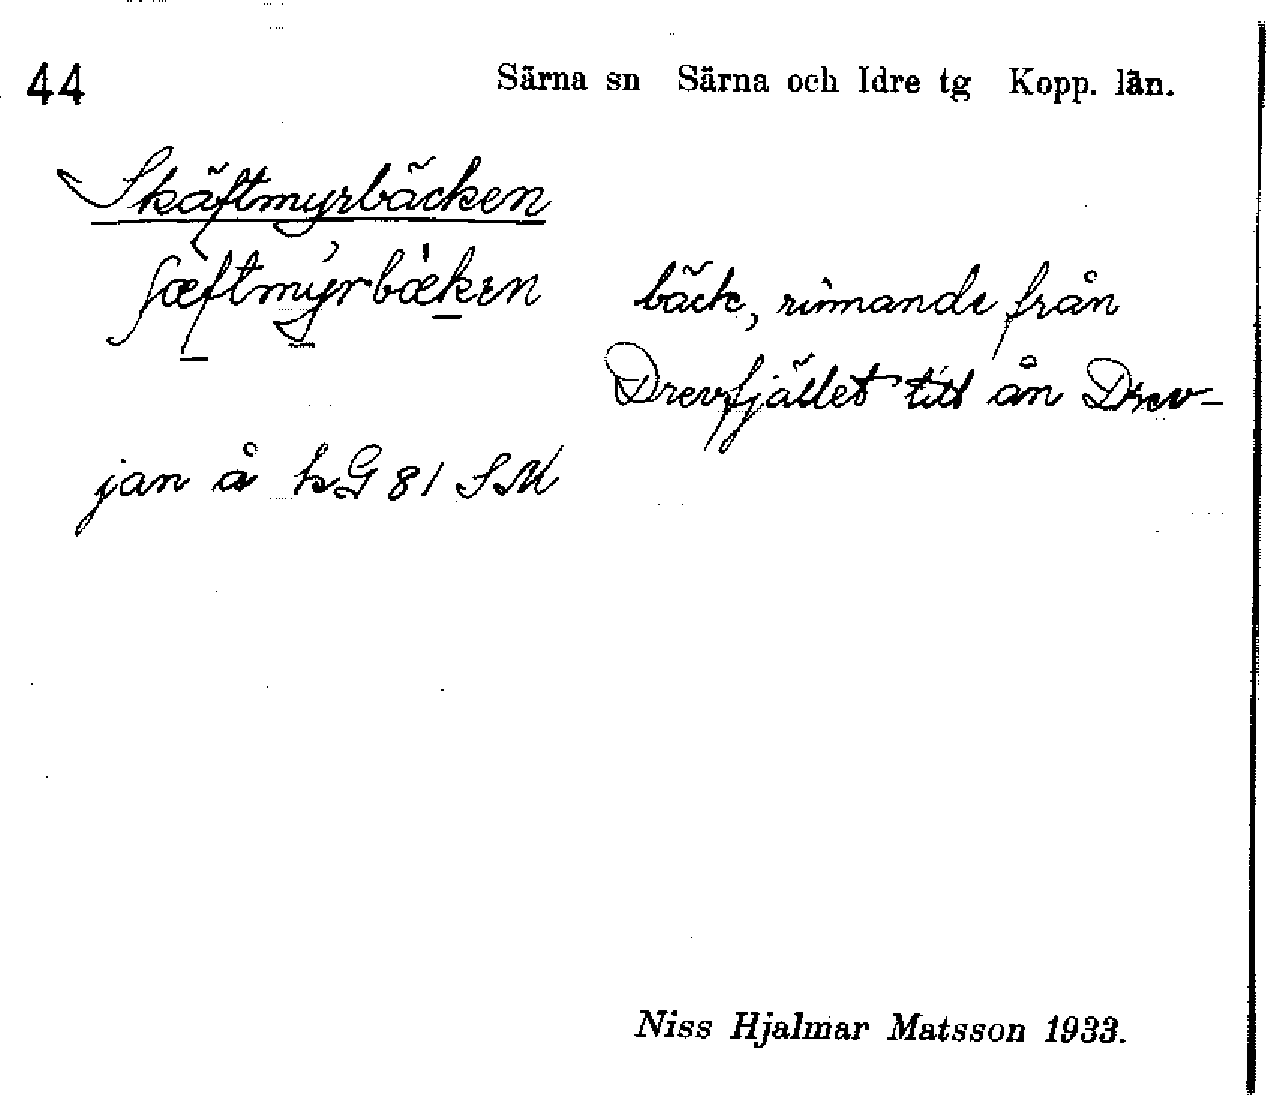 44
Särna sn Särna och Idre tg Kopp. län.
Skäftmyrbäcken
ʃæftmyrbækɛn bäck, rinnande från
Drevfjället till ån Drev-
jan å kG 81 SM
Niss Hjalmar Matsson 1933.